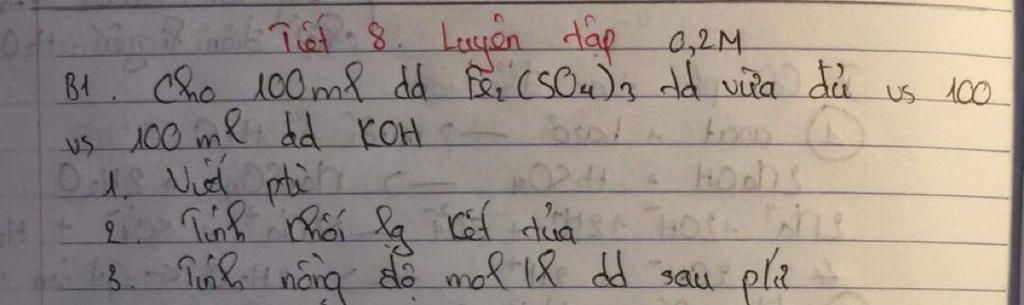 Tiết 8. Luyện tập 0,2M
B1. Cho 100ml dd Fe₂(SO₄)₃ td vừa đủ vs 100
vs 100ml dd KOH
1. Viết ptr
2. Tính khối lg kết tủa
3. Tính nồng độ mol/l dd sau pứ